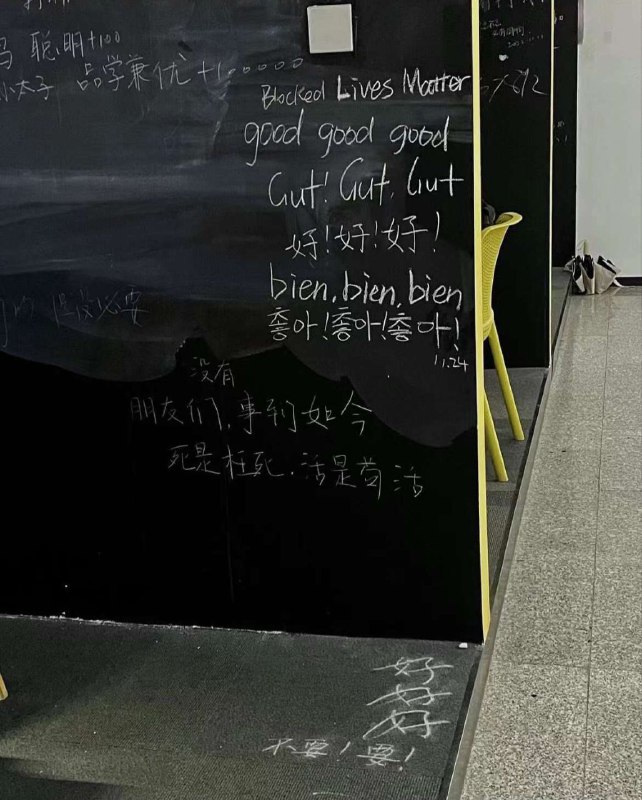 聪明+100
小太子 品学兼优+100000
Blocked Lives Matter
good good good
Gut! Gut, Gut
好!好!好!
bien, bien, bien
좋아!좋아!좋아!
11.24
没必要
没有
朋友们,事到如今
死是枉死,活是苟活
好
好
好
不要!要!